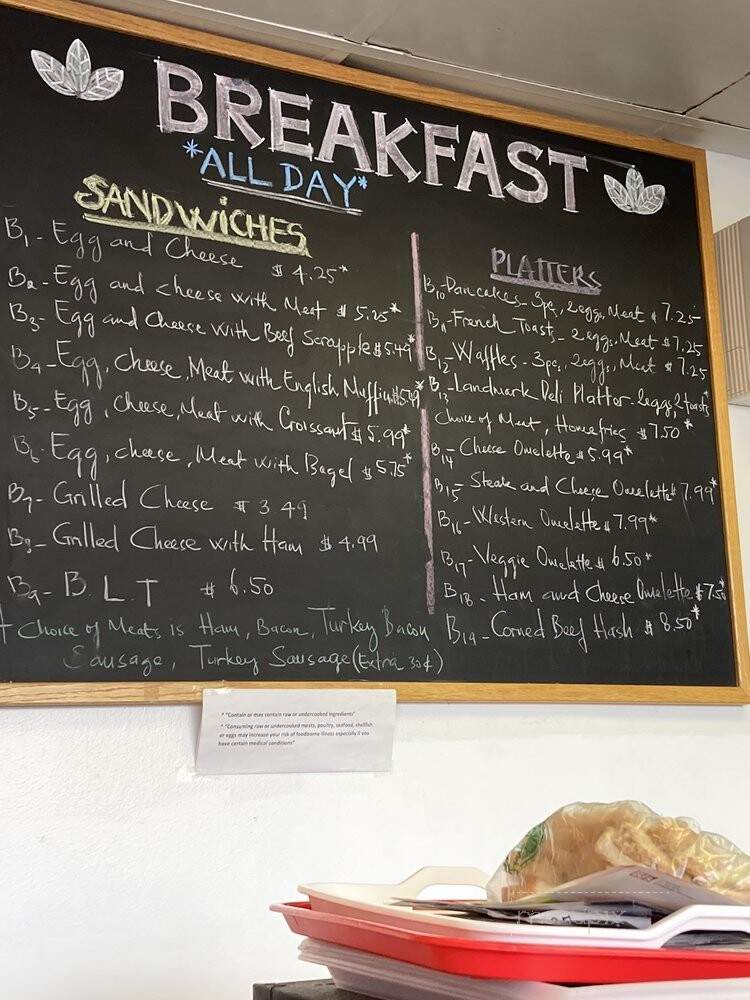 BREAKFAST
*ALL DAY*
SANDWICHES
B1- Egg and Cheese $ 4.25*
B2- Egg and cheese with Meat $ 5.25*
B3- Egg and Cheese with Beef Scrapple $5.49*
B4- Egg, Cheese, Meat with English Muffin $5.49*
B5- Egg, Cheese, Meat with Croissant $5.99*
B6- Egg, cheese, Meat with Bagel $5.75*
B7- Grilled Cheese $ 3.49
B8- Grilled Cheese with Ham $ 4.99
B9- B.L.T $ 6.50
+ Choice of Meats is Ham, Bacon, Turkey Bacon
Sausage, Turkey Sausage (Extra 30¢)
PLATTERS
B10- Pancakes- 3pc, 2eggs, Meat $ 7.25
B11- French Toast- 2eggs, Meat $7.25
B12- Waffles- 3pc, 2eggs, Meat $ 7.25
B13- Landmark Deli Platter- 2eggs, 2toasts*
Choice of Meat, Homefries $7.50*
B14- Cheese Omelette $ 5.99*
B15- Steak and Cheese Omelette $ 7.99*
B16- Western Omelette $ 7.99*
B17- Veggie Omelette $ 6.50*
B18- Ham and Cheese Omelette $7.50*
B19- Corned Beef Hash $ 8.50*
* "Contain or may contain raw or undercooked ingredients"
* "Consuming raw or undercooked meats, poultry, seafood, shellfish
or eggs may increase your risk of foodborne illness especially if you
have certain medical conditions"